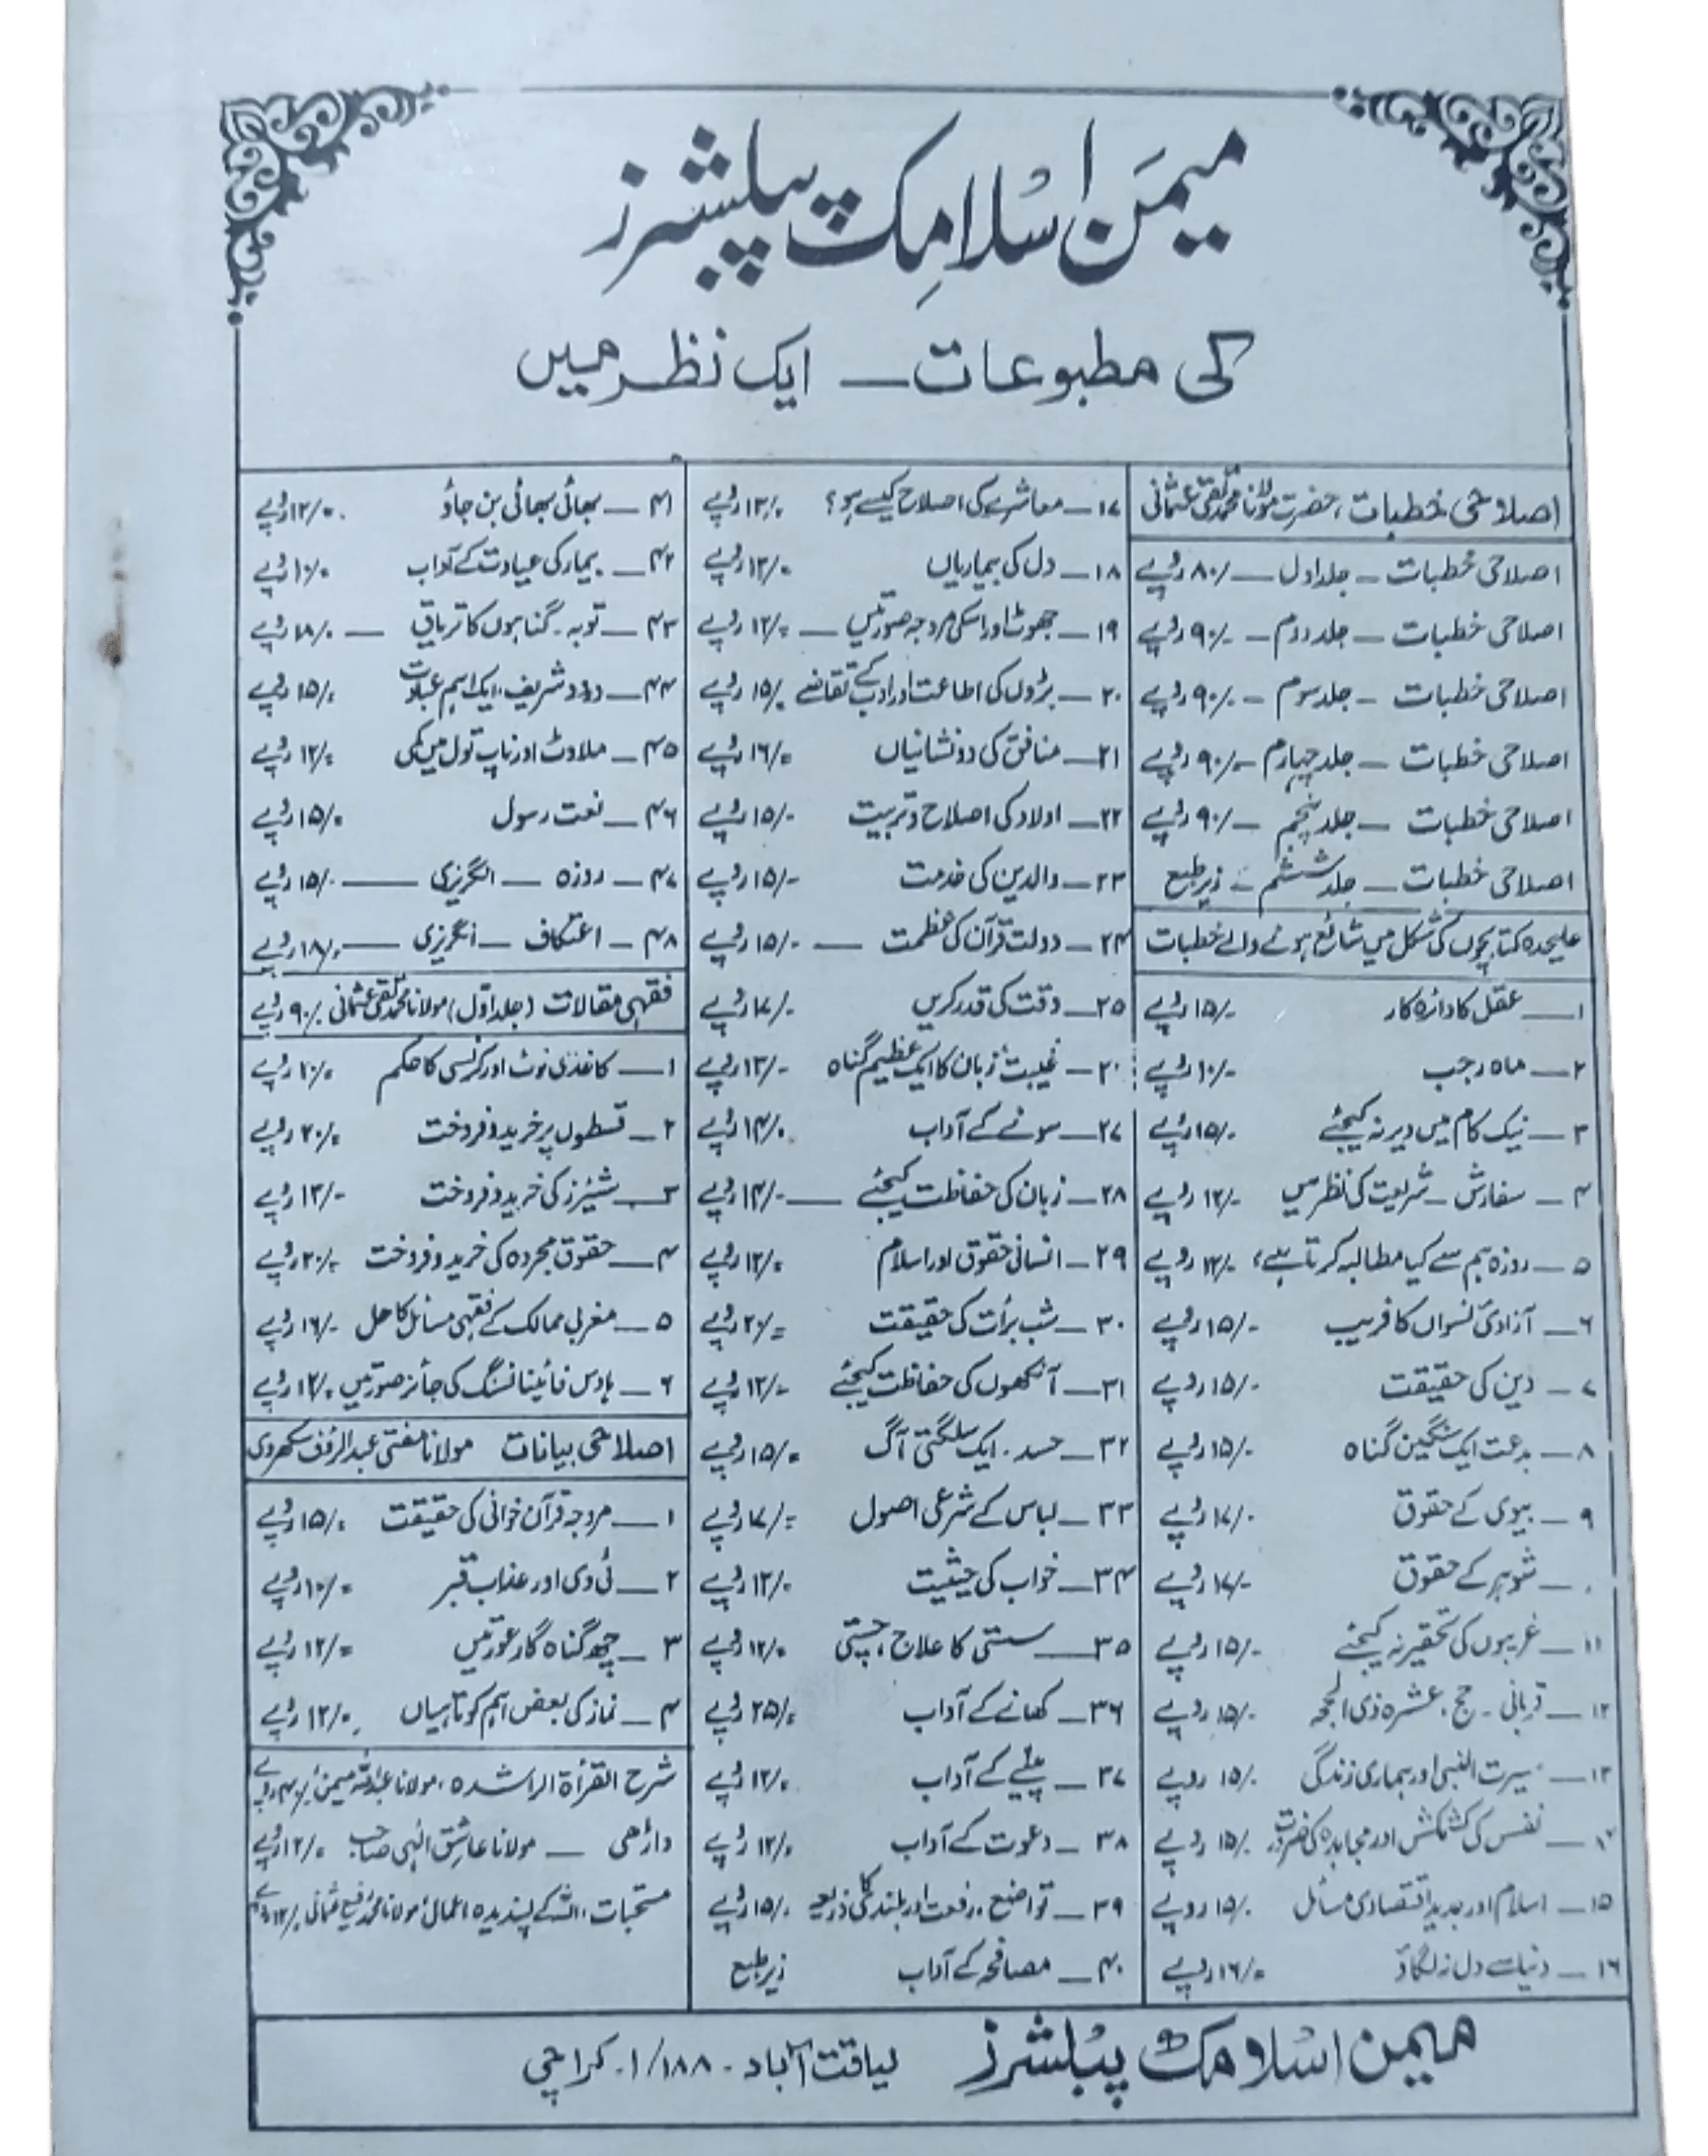 میمن اسلامک پبلشرز
کی مطبوعات ـ ایک نظر میں
اصلاحی خطبات، حضرت مولانا محمد تقی عثمانی
اصلاحی خطبات ـ جلد اول ـ ۸۰/۰ روپے
اصلاحی خطبات ـ جلد دوم ـ ۹۰/۰ روپے
اصلاحی خطبات ـ جلد سوم ـ ۹۰/۰ روپے
اصلاحی خطبات ـ جلد چہارم ـ ۹۰/۰ روپے
اصلاحی خطبات ـ جلد پنجم ـ ۹۰/۰ روپے
اصلاحی خطبات ـ جلد ششم ـ زیر طبع
علیحدہ کتابچوں کی شکل میں شائع ہونے والے خطبات
۱ ـ عقل کا دائرہ کار ۱۵/۰ روپے
۲ ـ ماہ رجب ۱۰/۰ روپے
۳ ـ نیک کام میں دیر نہ کیجئے ۱۵/۰ روپے
۴ ـ سفارش ـ شریعت کی نظر میں ۱۲/۰ روپے
۵ ـ روزہ ہم سے کیا مطالبہ کرتا ہے؟ ۱۲/۰ روپے
۶ ـ آزادئ نسواں کا فریب ۱۵/۰ روپے
۷ ـ دین کی حقیقت ۱۵/۰ روپے
۸ ـ بدعت ایک سنگین گناہ ۱۵/۰ روپے
۹ ـ بیوی کے حقوق ۱۷/۰ روپے
۰ ـ شوہر کے حقوق ۱۷/۰ روپے
۱۱ ـ غریبوں کی تحقیر نہ کیجئے ۱۵/۰ روپے
۱۲ ـ قربانی ـ حج ، عشرہ ذی الحجہ ۱۵/۰ روپے
۱۳ ـ سیرت النبی اور ہماری زندگی ۱۵/۰ روپے
۱۴ ـ نفس کی کشمکش اور مجاہدہ کی ضرورت ۱۵/۰ روپے
۱۵ ـ اسلام اور جدید اقتصادی مسائل ۱۵/۰ روپے
۱۶ ـ دنیا سے دل نہ لگاؤ ۱۶/۰ روپے
۱۷ ـ معاشرے کی اصلاح کیسے ہو؟ ۱۲/۰ روپے
۱۸ ـ دل کی بیماریاں ۱۲/۰ روپے
۱۹ ـ جھوٹ اور اسکی مروجہ صورتیں ـ ۱۲/۰ روپے
۲۰ ـ بڑوں کی اطاعت اور ادب کے تقاضے ۱۵/۰ روپے
۲۱ ـ منافق کی دو نشانیاں ۱۶/۰ روپے
۲۲ ـ اولاد کی اصلاح و تربیت ۱۵/۰ روپے
۲۳ ـ والدین کی خدمت ۱۵/۰ روپے
۲۴ ـ دولت قرآن کی عظمت ـ ۱۵/۰ روپے
۲۵ ـ وقت کی قدر کریں ۱۷/۰ روپے
۲۰ ـ غیبت زبان کا ایک عظیم گناہ ۱۲/۰ روپے
۲۷ ـ سونے کے آداب ۱۴/۰ روپے
۲۸ ـ زبان کی حفاظت کیجئے ـ ۱۴/۰ روپے
۲۹ ـ انسانی حقوق اور اسلام ۱۲/۰ روپے
۳۰ ـ شب برأت کی حقیقت ۲۰/۰ روپے
۳۱ ـ آنکھوں کی حفاظت کیجئے ۱۲/۰ روپے
۳۲ ـ حسد ـ ایک سلگتی آگ ۱۵/۰ روپے
۳۳ ـ لباس کے شرعی اصول ۱۷/۰ روپے
۳۴ ـ خواب کی حیثیت ۱۲/۰ روپے
۳۵ ـ سستی کا علاج، چستی ۱۲/۰ روپے
۳۶ ـ کھانے کے آداب ۲۵/۰ روپے
۳۷ ـ پینے کے آداب ۱۲/۰ روپے
۳۸ ـ دعوت کے آداب ۱۲/۰ روپے
۳۹ ـ تواضع، رفعت اور بلندی کا ذریعہ ۱۵/۰ روپے
۴۰ ـ مصافحہ کے آداب زیر طبع
۴۱ ـ بھائی بھائی بن جاؤ ۱۲/۰ روپے
۴۲ ـ بیمار کی عیادت کے آداب ۱۰/۰ روپے
۴۳ ـ توبہ ـ گناہوں کا تریاق ـ ۱۸/۰ روپے
۴۴ ـ درود شریف، ایک اہم عبادت ۱۵/۰ روپے
۴۵ ـ ملاوٹ اور ناپ تول میں کمی ۱۲/۰ روپے
۴۶ ـ نعت رسول ۱۵/۰ روپے
۴۷ ـ روزہ ـ انگریزی ـ ۱۵/۰ روپے
۴۸ ـ اعتکاف ـ انگریزی ـ ۱۸/۰ روپے
فقہی مقالات (جلد اوّل) مولانا محمد تقی عثمانی ۹۰/۰ روپے
۱ ـ کاغذی نوٹ اور کرنسی کا حکم ۲۰/۰ روپے
۲ ـ قسطوں پر خرید و فروخت ۲۰/۰ روپے
۳ ـ شیئرز کی خرید و فروخت ۱۲/۰ روپے
۴ ـ حقوق مجردہ کی خرید و فروخت ۲۰/۰ روپے
۵ ـ مغربی ممالک کے فقہی مسائل کا حل ۱۶/۰ روپے
۶ ـ ہاؤس فائینانسنگ کی جائز صورتیں ۱۲/۰ روپے
اصلاحی بیانات مولانا مفتی عبدالرؤف سکھروی
۱ ـ مروجہ قرآن خوانی کی حقیقت ۱۵/۰ روپے
۲ ـ ٹی وی اور عذاب قبر ۱۰/۰ روپے
۳ ـ چھ گناہ گار عورتیں ۱۲/۰ روپے
۴ ـ نماز کی بعض اہم کوتاہیاں ۱۲/۰ روپے
شرح القرأۃ الراشدہ ، مولانا عبداللہ میمن ۴۰/۰ روپے
داڑھی ـ مولانا عاشق الٰہی صاحب ۱۲/۰ روپے
مستحبات، اللہ کے پسندیدہ اعمال، مولانا محمد رفیع عثمانی ۱۲/۰ روپے
میمن اسلامک پبلشرز لیاقت آباد ـ ۱/۱۸۸ ـ کراچی